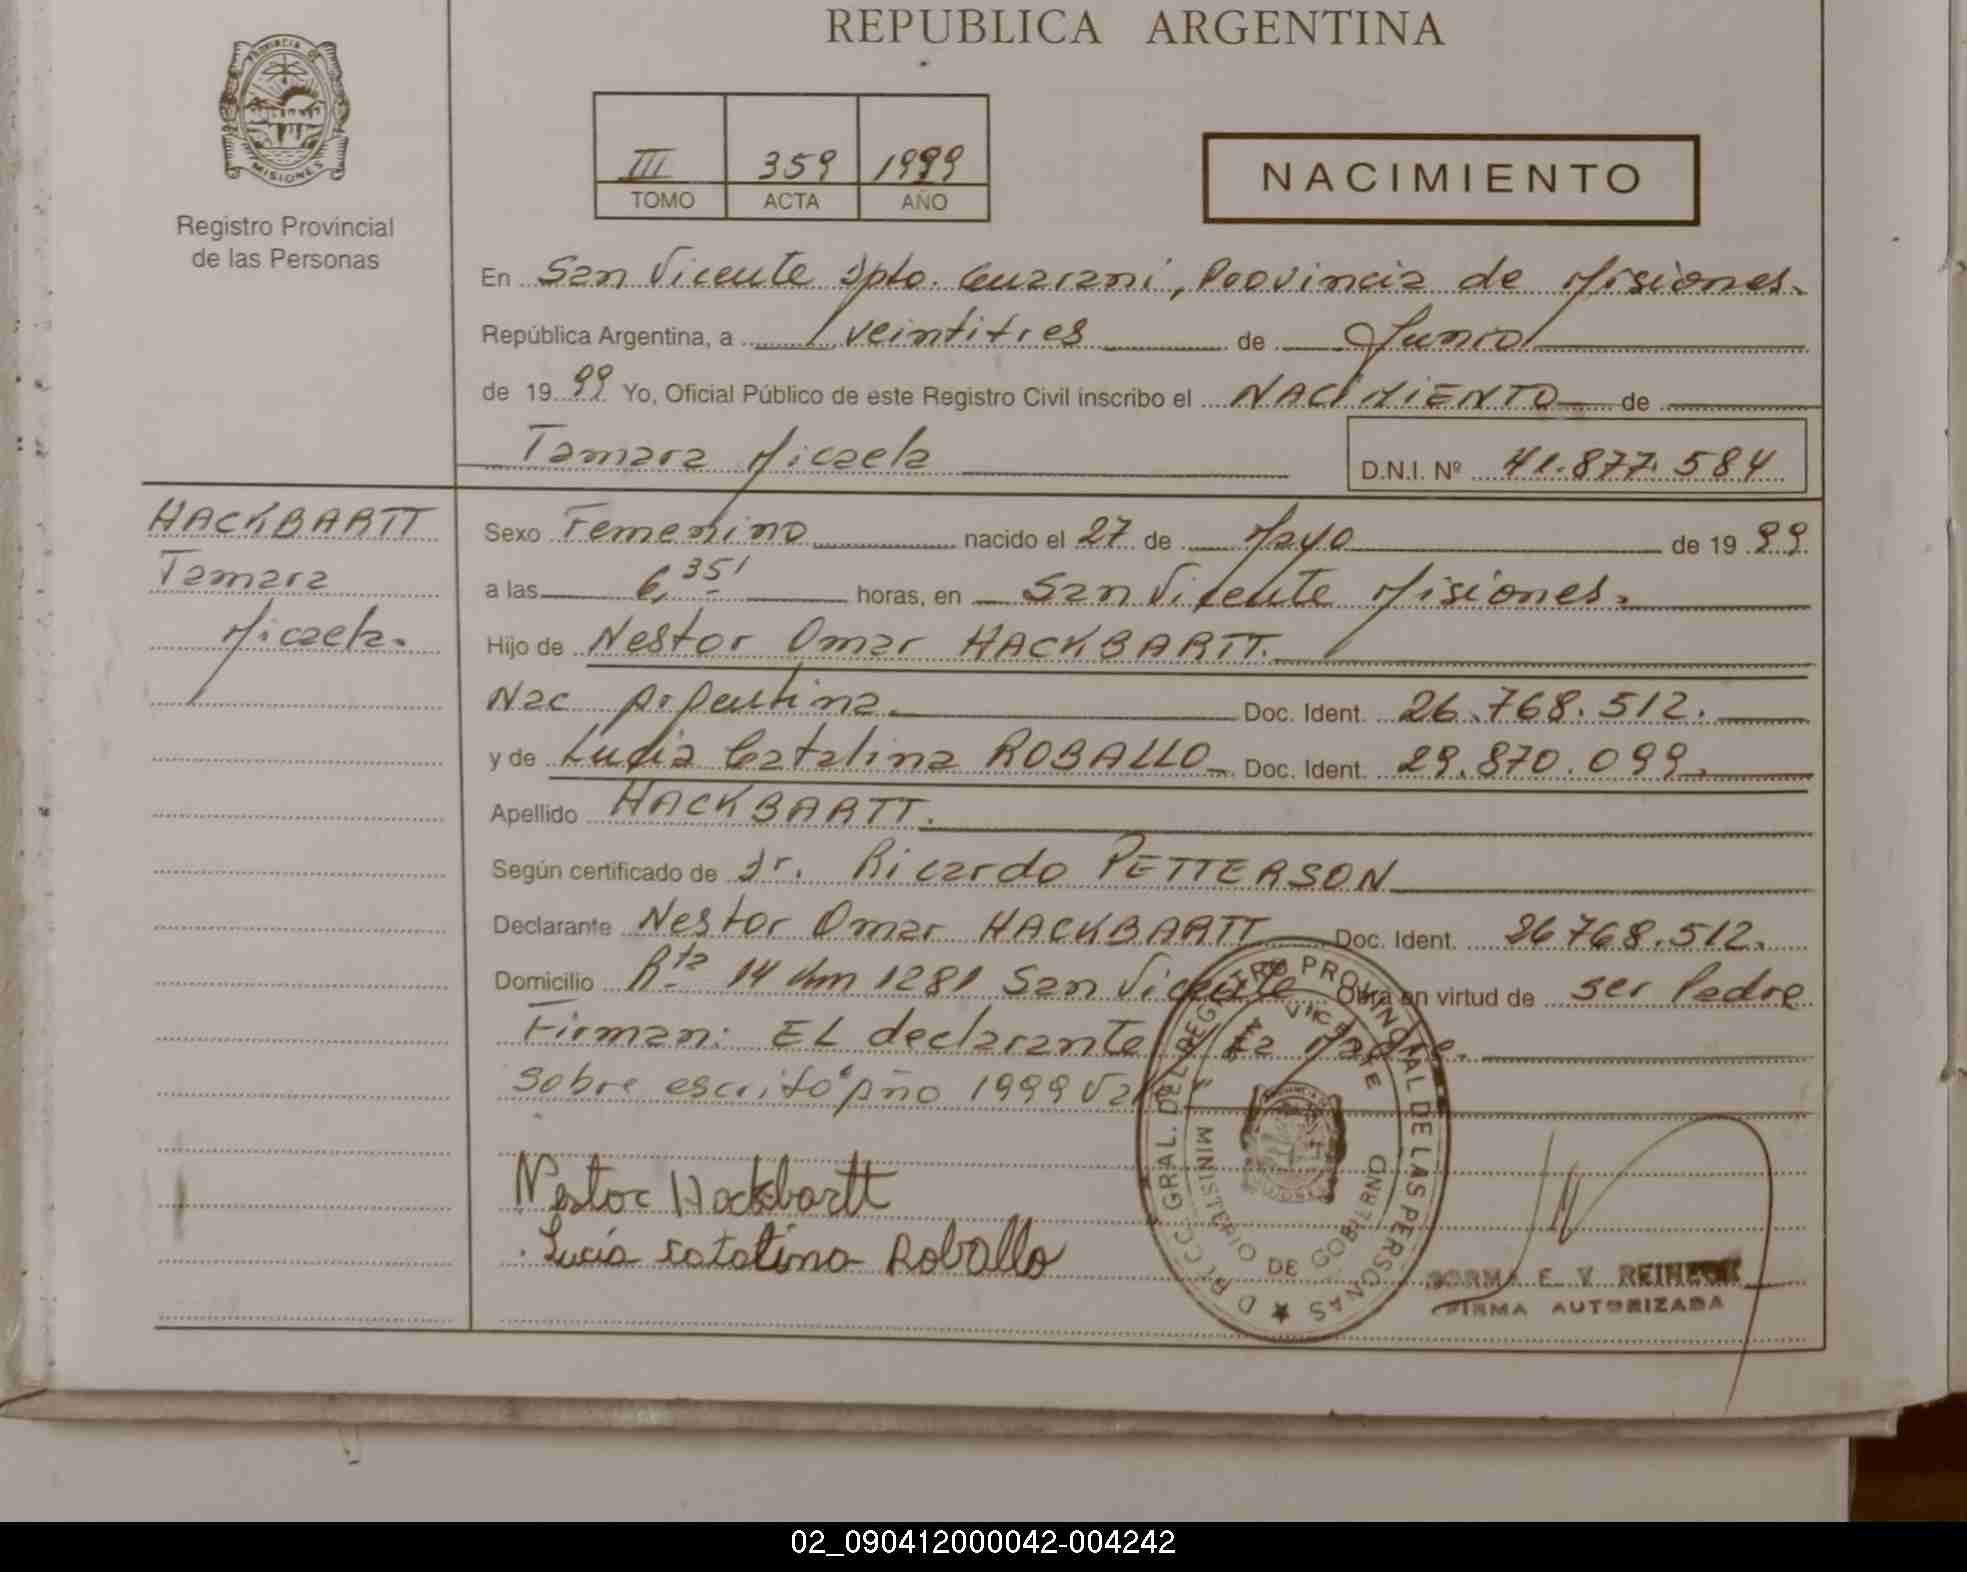 REPUBLICA ARGENTINA
PROVINCIA DE
MISIONES
Registro Provincial
de las Personas
III 359 1999
TOMO ACTA AÑO
NACIMIENTO
En San Vicente Dpto. Guarani, Provincia de Misiones.
República Argentina, a veintitres de Junio
de 19 99 Yo, Oficial Público de este Registro Civil inscribo el NACIMIENTO de
Tamara Micaela D.N.I. Nº 41.877.584
HACKBARTT
Tamara
Micaela.
Sexo Femenino nacido el 27 de Mayo de 19 99
a las 6,35' horas, en San Vicente Misiones.
Hijo de Nestor Omar HACKBARTT.
Nac Argentina. Doc. Ident. 26.768.512.
y de Lucia Catalina ROBALLO Doc. Ident. 29.870.099.
Apellido HACKBARTT.
Según certificado de Dr. Ricardo PETTERSON
Declarante Nestor Omar HACKBARTT Doc. Ident. 26768.512.
Domicilio Rta 14 Km 1281 San Vicente Obra en virtud de ser Padre
Firman: EL declarante y La Madre.
Sobre escrito "Año 1999 Vale"
Nestor Hackbartt
Lucía catalina Roballo
GRAL. DEL REGISTRO PROVINCIAL DE LAS PERSONAS
VICENTE
MINISTERIO DE GOBIERNO
E. V. 
FIRMA AUTORIZADA
02_090412000042-004242